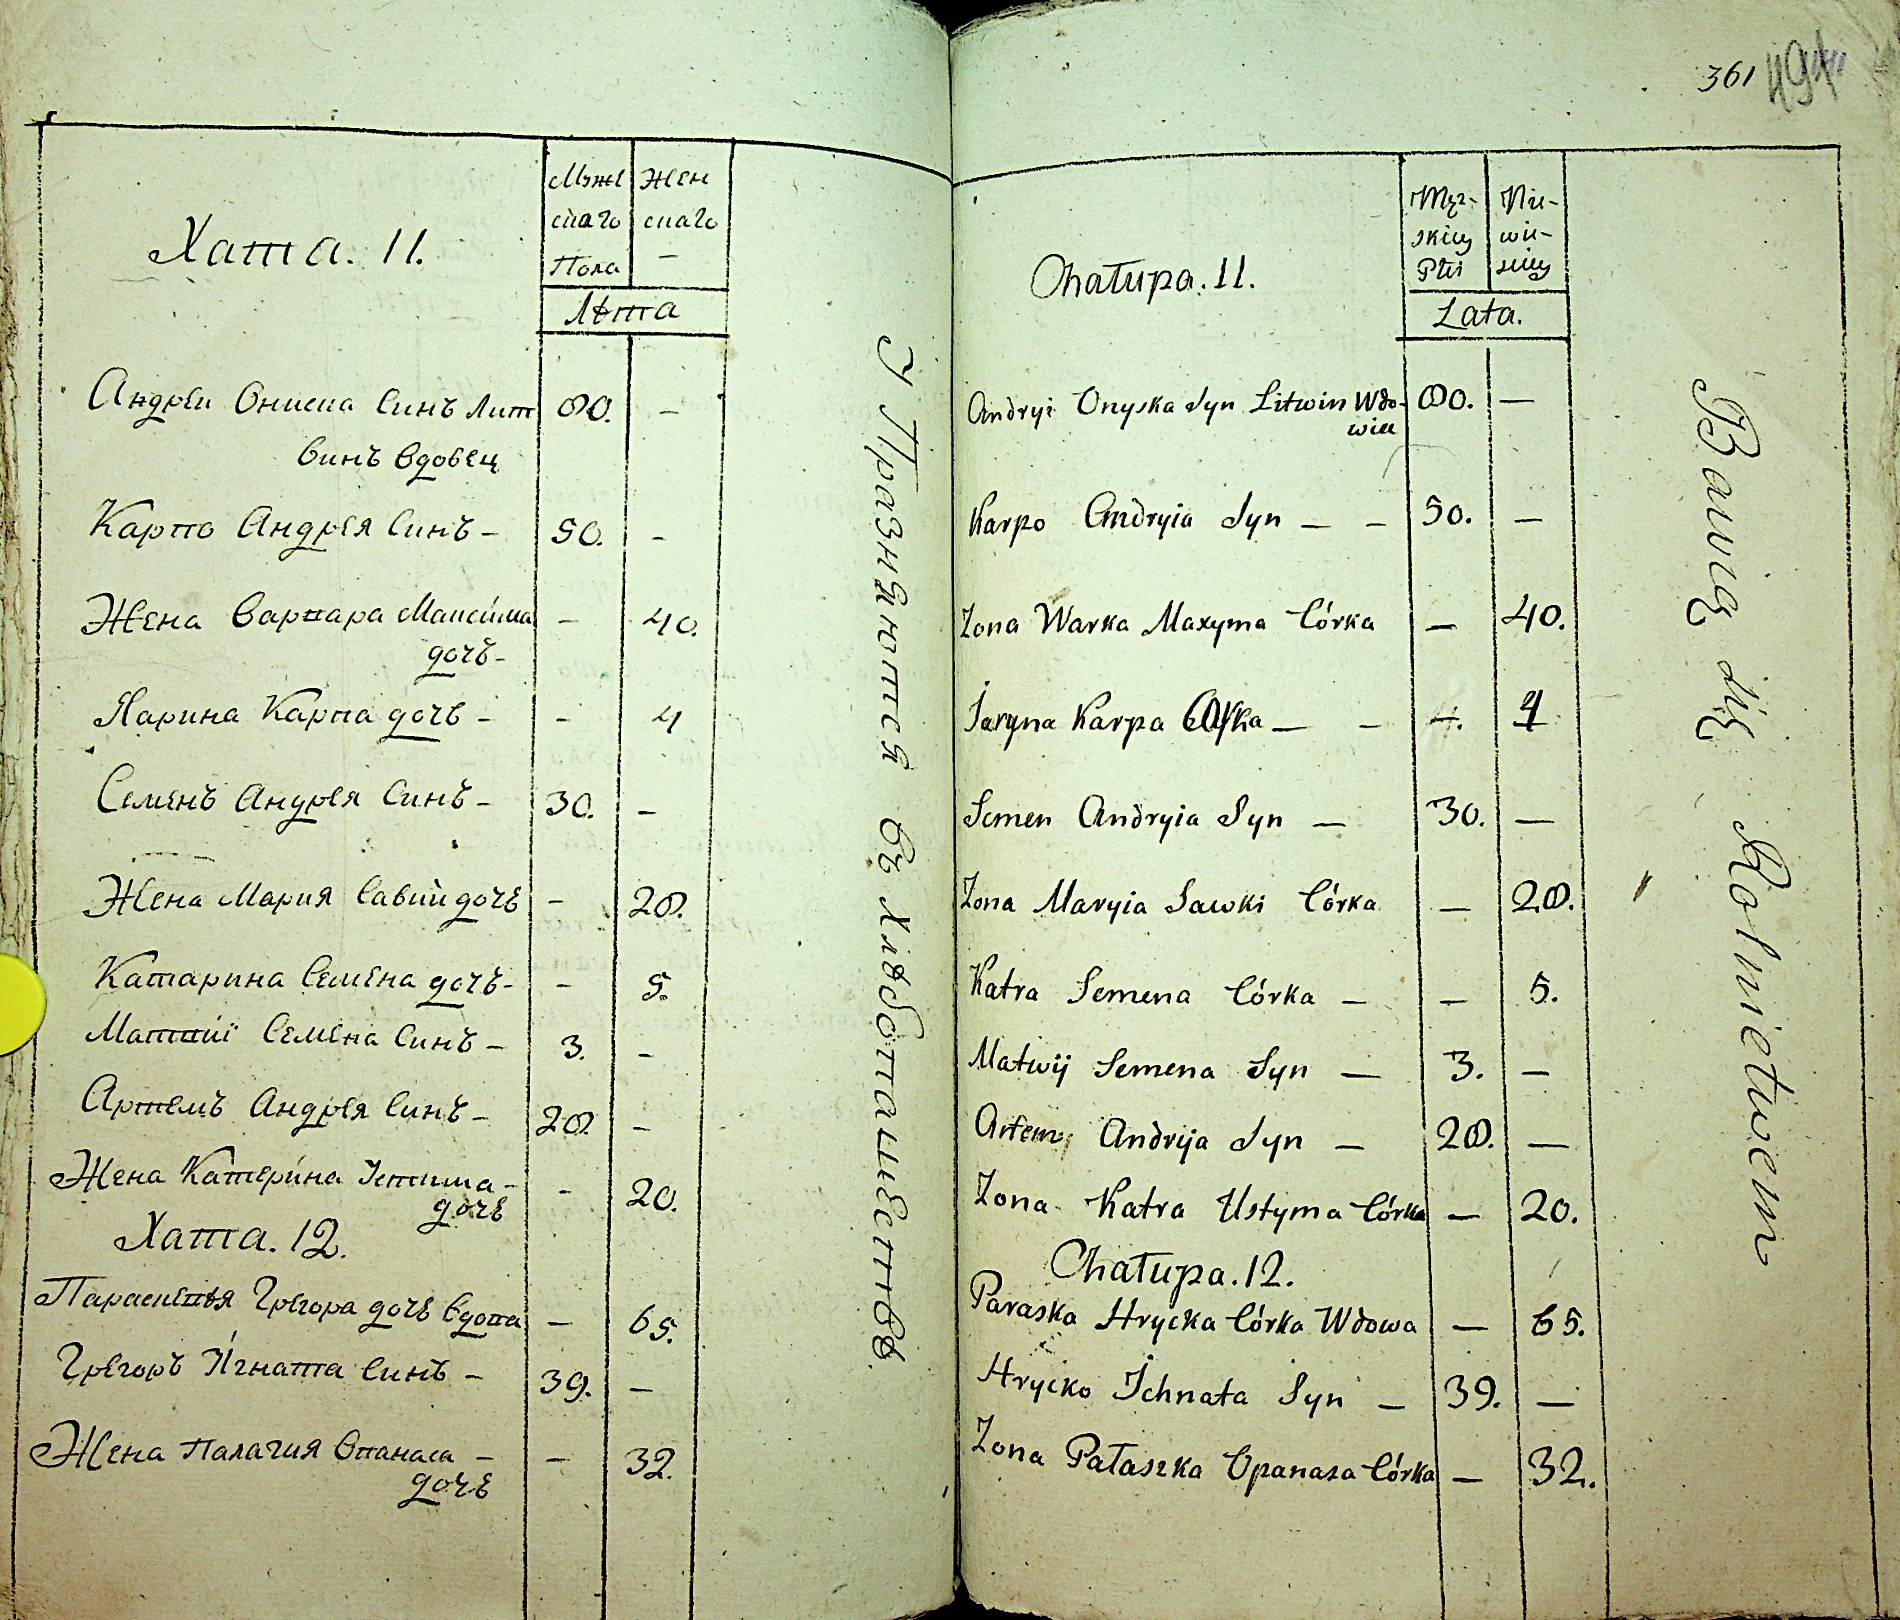 Хата. 11.
Мъже Жен
скаго скаго
Пола –
Лѣта
Андрѣи Ониска Синъ Лит 80. –
винъ вдовец
Карпо Андрѣя Синъ – 50. –
Жена Варвара Максима – 40.
дочъ –
Ярина Карпа дочь – – 4
Семенъ Андрѣя Синъ – 30. –
Жена Мария Савки дочь – 28.
Катарина Семена дочъ – – 5.
Матвиї Семена Синъ – 3. –
Артемъ Андрѣя Синъ – 28 –
Жена Катерина Устима – – 20.
дочь
Хата. 12.
Параскевья Грегора дочь вдова – 65.
Грегоръ Игната Синъ – 39. –
Жена Палагия Опанаса – – 32.
дочь
Упражняются въ хлѣбопашествѣ.
361
494
Chałupa. 11.
Męz- Nie-
skiey wie-
Płci sciey
Lata.
Andryi Onyska Syn Litwin Wdo- 80. —
wiec
Karpo Andryia Syn — – 50. —
Zona Warka Maxyma Córka — 40.
Jaryna Karpa Córka — – 4. 4
Semen Andryia Syn — 30. —
Zona Maryia Sawki Córka — 28.
Katra Semena Córka — – 5.
Matwij Semena Syn — 3. —
Artem Andrija Syn — 28. —
Zona Katra Ustyma Córka — 20.
Chałupa. 12.
Paraska Hrycka Córka Wdowa — 65.
Hrycko Ichnata Syn — 39. —
Zona Pałaszka Opanasa Córka — 32.
Bawią się Rolnictwem